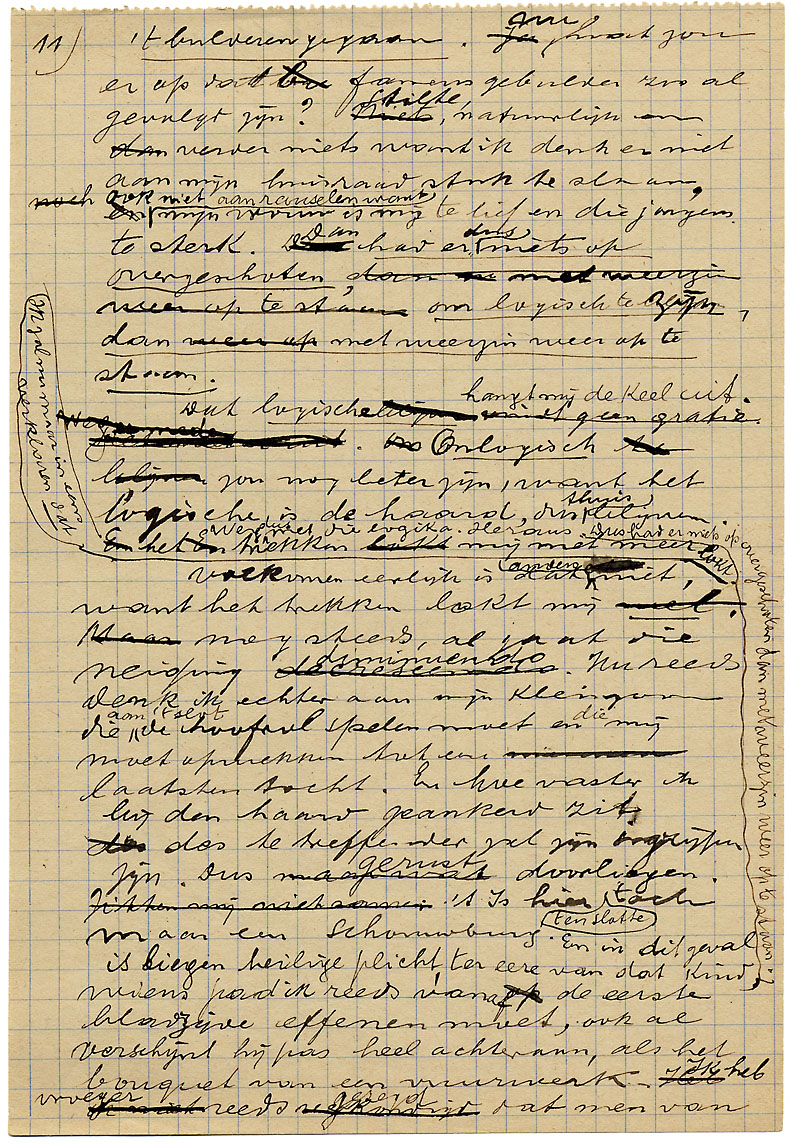 11)
't bulderen gegaan. Ja nu, wat zou
er op dat famous gebulder zoo al
gevolgd zijn? Niets Stilte, natuurlijk en
dan verder niets want ik denk er niet
aan mijn huisraad stuk te slaan,
noch ook niet aanranselen want
en mijn vrouw is mij te lief en die jongens
te sterk. Dan had er dus niets op
overgeschoten dan met weerzin
weer op te staan om logisch te zijn,
dan weer op met weerzin weer op te
staan.
Dat logische hangt mij de keel uit.
vindt geen gratie.
Weg ermede. Onlogisch
blijven zou nog beter zijn, want het
logische, is de haard, dus thuis blijven.
Weg dus met die logika. Heraus dus had er niets op overgeschoten dan met weerzin weer op te staan?
En het trekken lokt mij niet meer lokt.
Hjalmar maar in eens
verklaren dat
Volkomen eerlijk is dat andere niet,
want het trekken lokt mij wel.
Maar nog steeds, al gaat die
neiging decrescendo diminuendo. Nu reeds
denk ik echter aan mijn kleinzoon
die aan 't slot de hoofdrol spelen moet en die mij
moet opwekken tot een
laatsten tocht. En hoe vaster ik
bij den haard geankerd zit,
des des te treffender zal zijn ingrijpen
zijn. Dus maar wat gerust doorliegen.
't Is hier toch
maar een Schouwburg. ten slotte En in dit geval
is liegen heilige plicht, ter eere van dat kind,
wiens pad ik reeds vanaf op de eerste
bladzijde effenen moet, ook al
verschijnt hij pas heel achteraan, als het
bouquet van een vuurwerk. Ik heb
vroeger reeds verkondigd gezegd dat men van